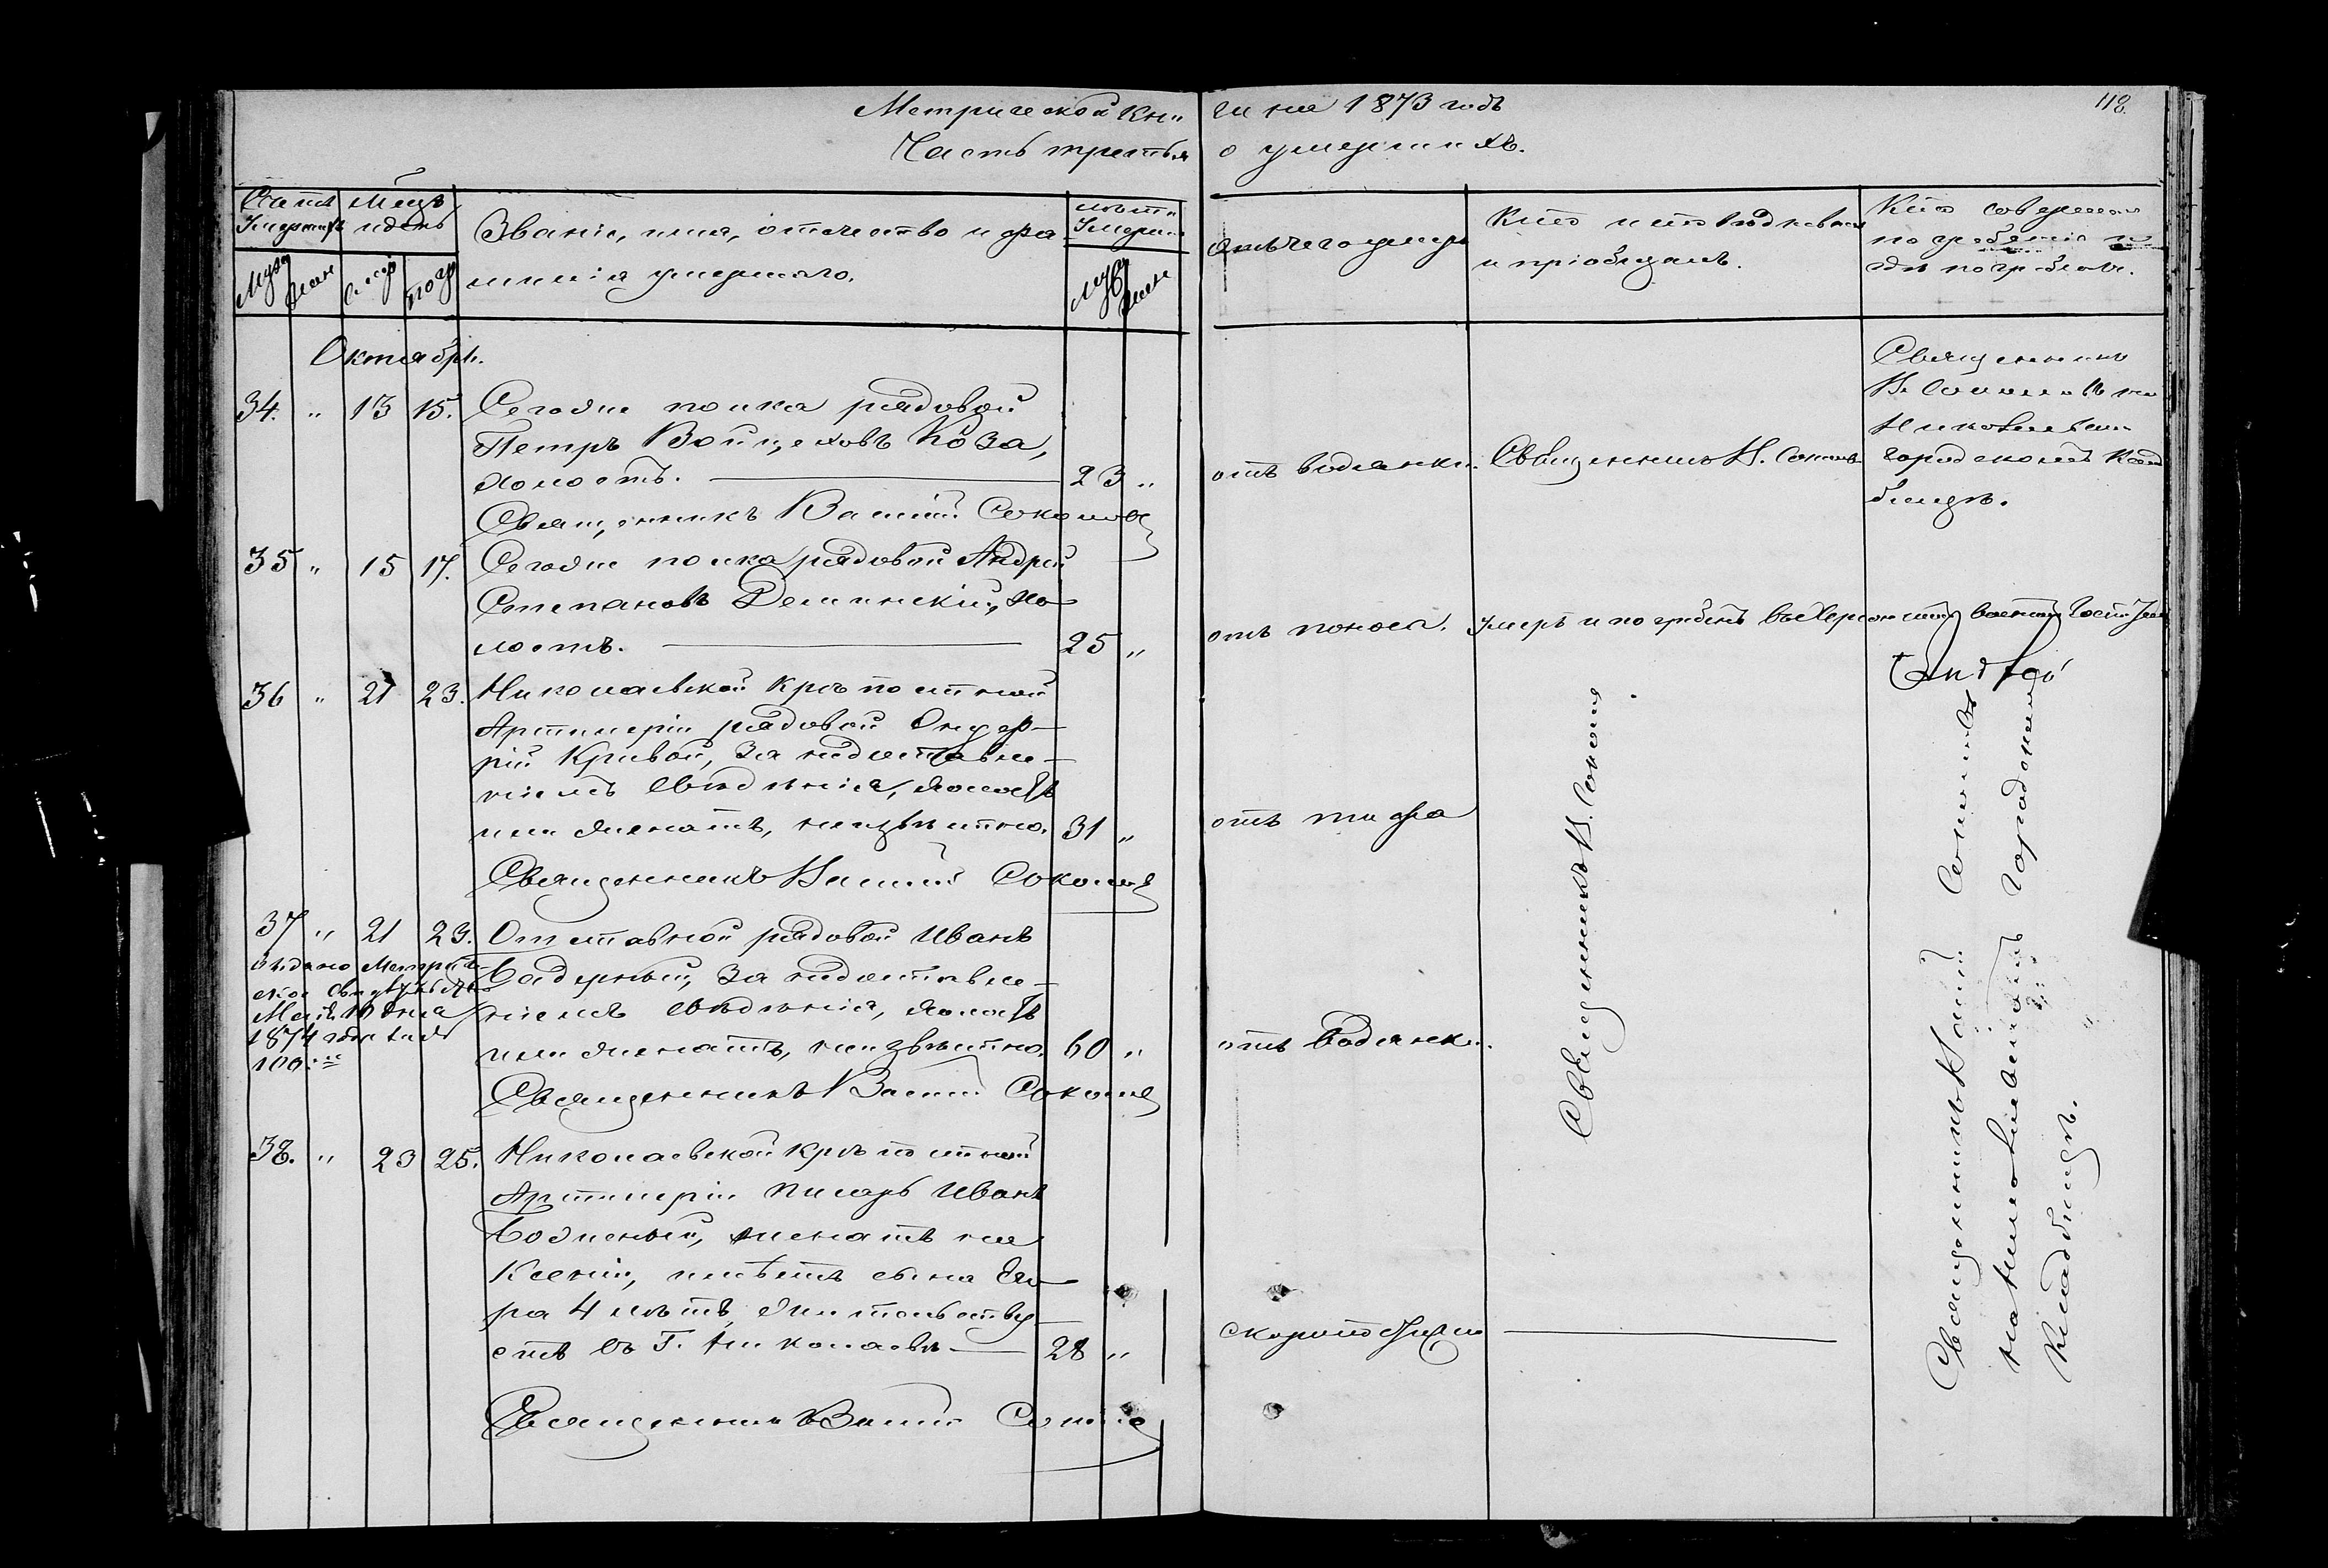 Метрической кни
ги на 1873 годъ
118.
Часть третья
о умершихъ.
Счетъ Умершихъ
Мѣсяцъ и день
Званіе, имя, отчество и фа
милія умершаго.
Лѣта Умерш
Муж
Жен
смер
погр
Муж
Жен
отъ чего умеръ
Кто исповѣдывалъ
и пріобщалъ.
Кто совершалъ
погребеніе и
гдѣ погребены.
Октябрь.
34. " 13 15. Сего же полка рядовой
Петръ Войцеховъ Коза,
холостъ. 23 "
отъ водянки. Священникъ В. Соколовъ
Священникъ
В. Соколовъ на
Николаевскомъ
городскомъ клад
бищѣ.
Священникъ Василій Соколовъ
35 " 15 17. Сего же полка рядовой Андрей
Степановъ Деминскій, хо
лостъ. 25 "
отъ поноса. Умеръ и погребенъ въ Херсонскомъ военномъ Госпит
36 " 21 23. Николаевской крѣпостной
Артиллеріи рядовой Онуф-
рій Кривой, за недоставле-
ніемъ свѣдѣнія, холостъ
или женатъ, неизвѣстно. 31 "
отъ тифа
Священникъ В. Соколовъ
Священникъ Василій Соколовъ
на Николаевскомъ городскомъ
кладбищѣ.
Священникъ Василій Соколовъ
37 " 21 23. Отставной рядовой Иванъ
Бадерный, за недоставле-
ніемъ свѣдѣнія, холостъ
или женатъ, неизвѣстно. 60 "
отъ водянки.
Выдано Метриче-
ское свидѣтельство
Мая 10 дня
1874 года за №
100
Священникъ Василій Соколовъ
38. " 23 25. Николаевской крѣпостной
Артиллеріи писарь Иванъ
женатъ на
Ксеніи, имѣетъ сына Его
ра 4 лѣтъ, жительству
етъ въ г. Николаевѣ 28 "
скоропостижно
Священникъ Василій Соколовъ